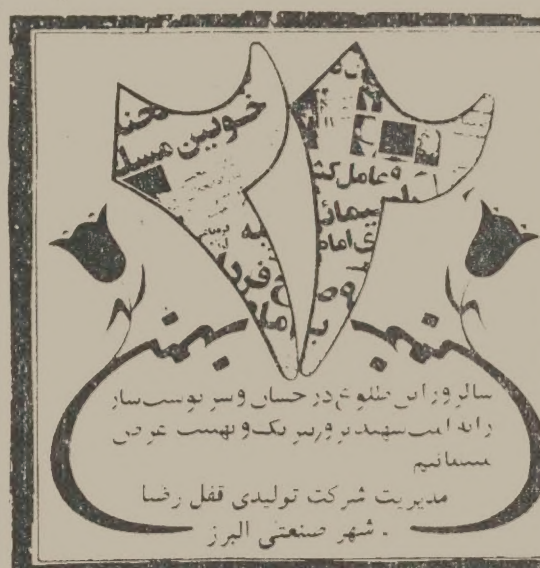 ۲۲
خونین مسل
و عامل کش
ی امام
به
بهمن
سالروز این طلوع درخشان و سرنوشت ساز
را به امت شهید پرور تبریک و تهنیت عرض
مینمائیم
مدیریت شرکت تولیدی قفل رضا
. شهر صنعتی البرز